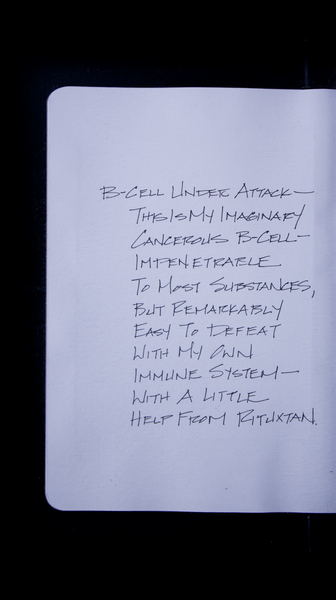 B-CELL UNDER ATTACK—
THIS IS MY IMAGINARY
CANCEROUS B-CELL—
IMPENETRABLE
TO MOST SUBSTANCES,
BUT REMARKABLY
EASY TO DEFEAT
WITH MY OWN
IMMUNE SYSTEM—
WITH A LITTLE
HELP FROM RITUXTAN.